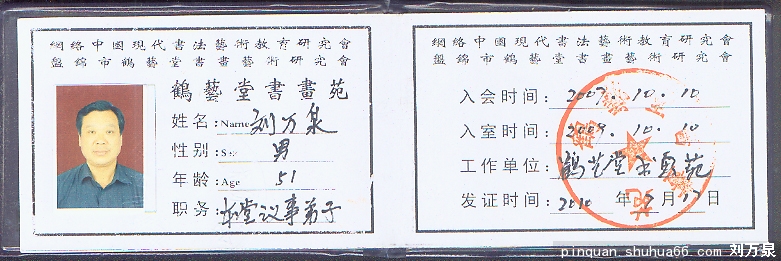 網絡中國現代書法藝術教育研究會
盤錦市鶴藝堂書畫藝術研究會
鶴藝堂書畫苑
姓名:Name 刘万泉
性别:Sex 男
年龄:Age 51
职务: 本堂议事弟子
網絡中國現代書法藝術教育研究會
盤錦市鶴藝堂書畫藝術研究會
入会时间:2009.10.10
入室时间:2009.10.10
工作单位:鹤艺堂书画苑
发证时间:2010年 月17日
pinquan.shuhua66.com 刘万泉